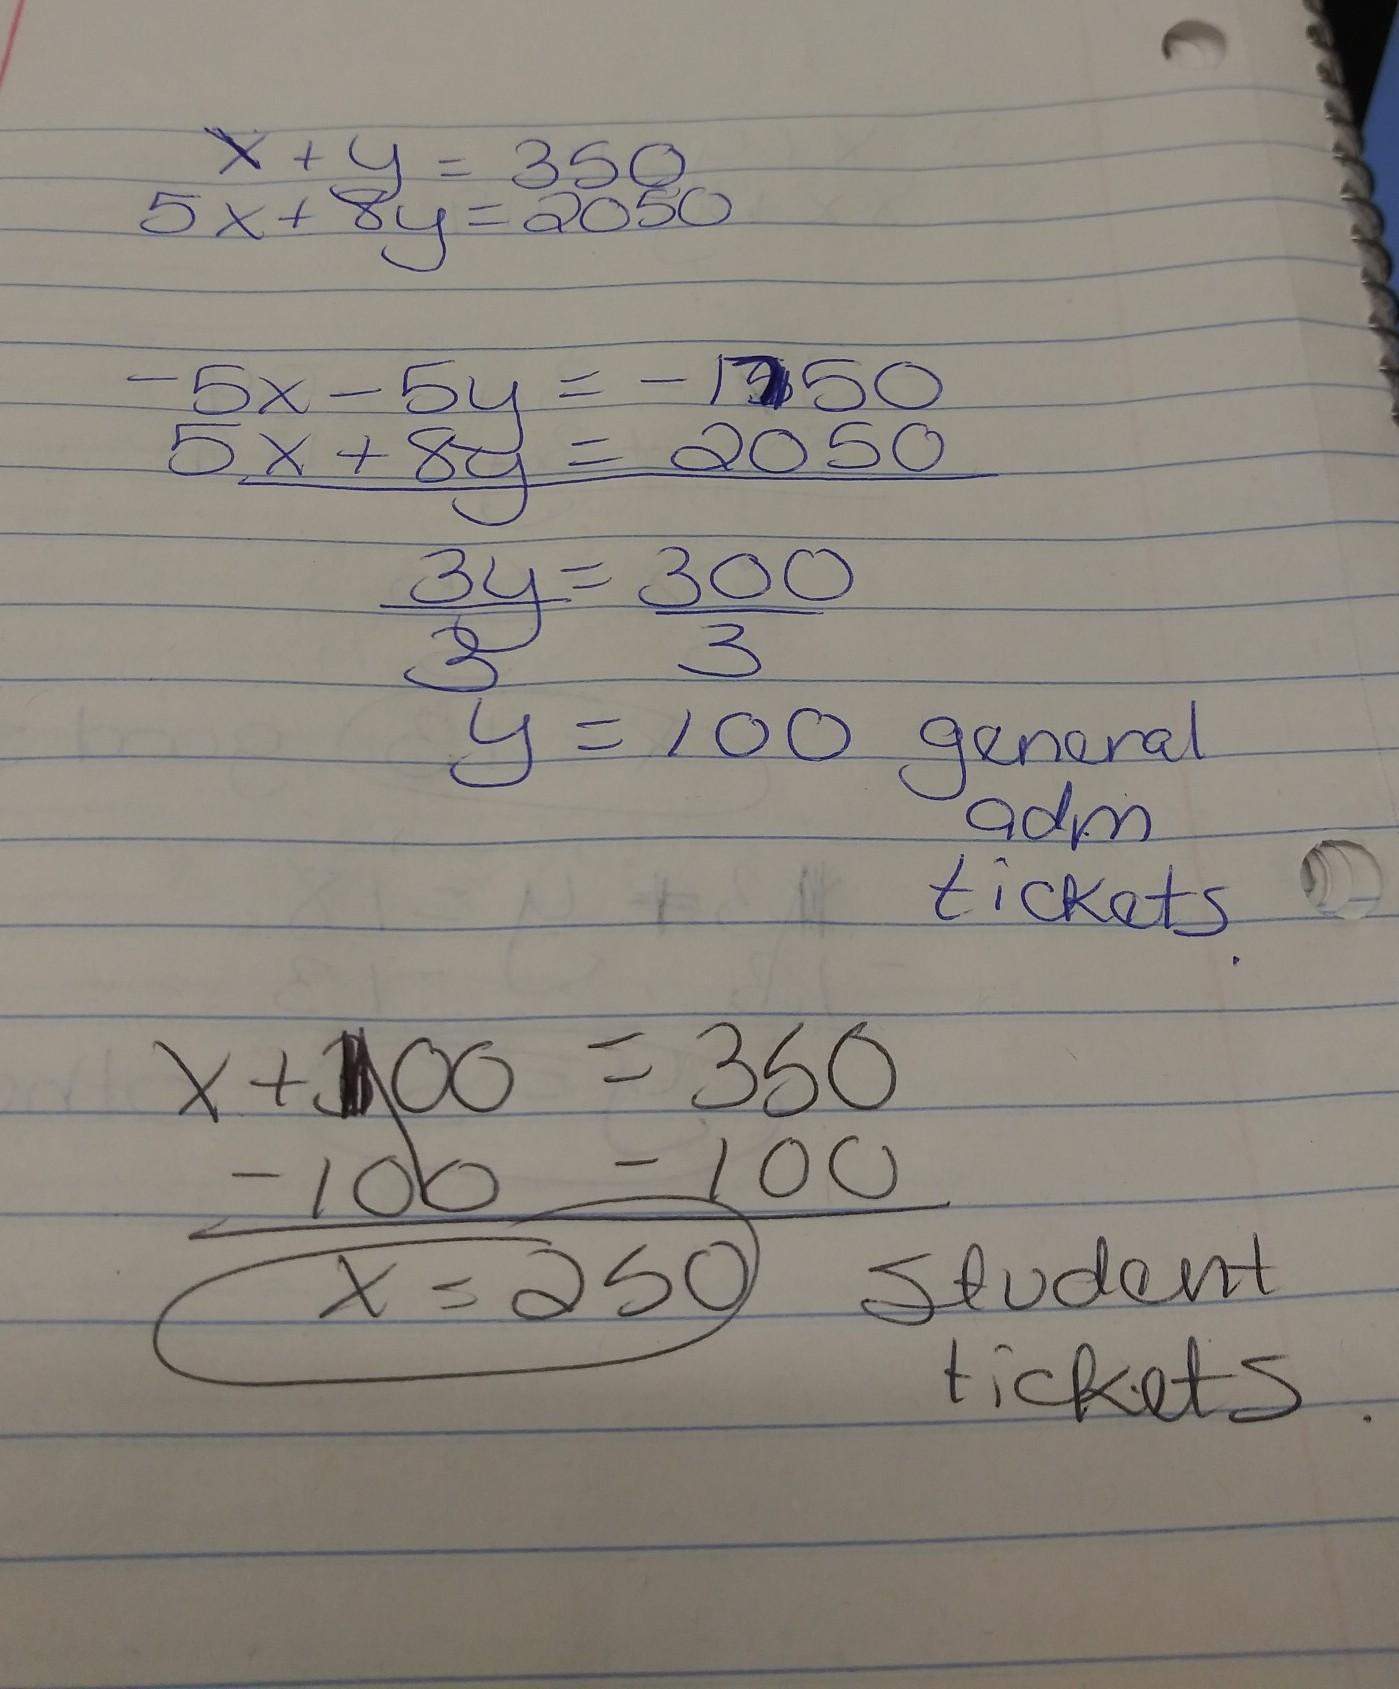 x + y = 350
5x + 8y = 2050
-5x - 5y = -1750
5x + 8y = 2050
3y = 300
3 3
y = 100 general
adm
tickets.
x + 100 = 350
-100 -100
x = 250 Student
tickets.